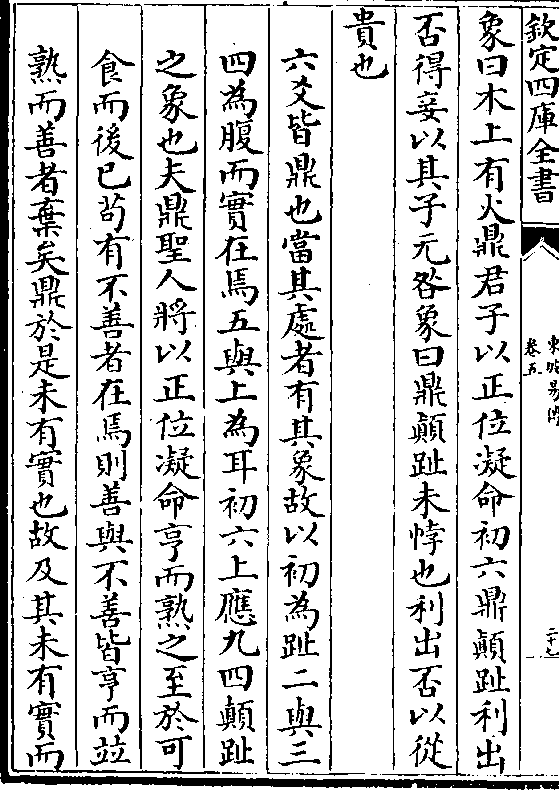 欽定四庫全書
東坡易傳
卷五
象曰木上有火鼎君子以正位凝命初六鼎顛趾利出
否得妾以其子元咎象曰鼎顛趾未悖也利出否以從
貴也
六爻皆鼎也當其處者有其象故以初為趾二與三
四為腹而實在焉五與上為耳初六上應九四顛趾
之象也夫鼎聖人將以正位凝命亨而熟之至於可
食而後已茍有不善者在焉則善與不善皆亨而竝
熟而善者棄矣鼎於是未有實也故及其未有實而